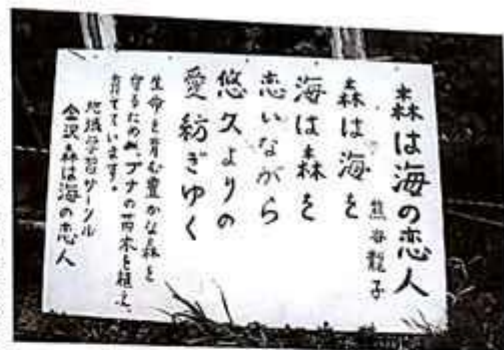 森は海の恋人
熊谷龍子
森は海を
海は森を
恋いながら
悠久よりの
愛紡ぎゆく
生命を育む豊かな森を
守るため、ブナの苗木を植え、
育てています。
地域学習サークル
金沢森は海の恋人